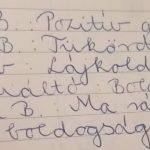 B. : Pozitív
B. : Tükörd
: Lájkold
váltó : Bol
B. Ma
boldogság